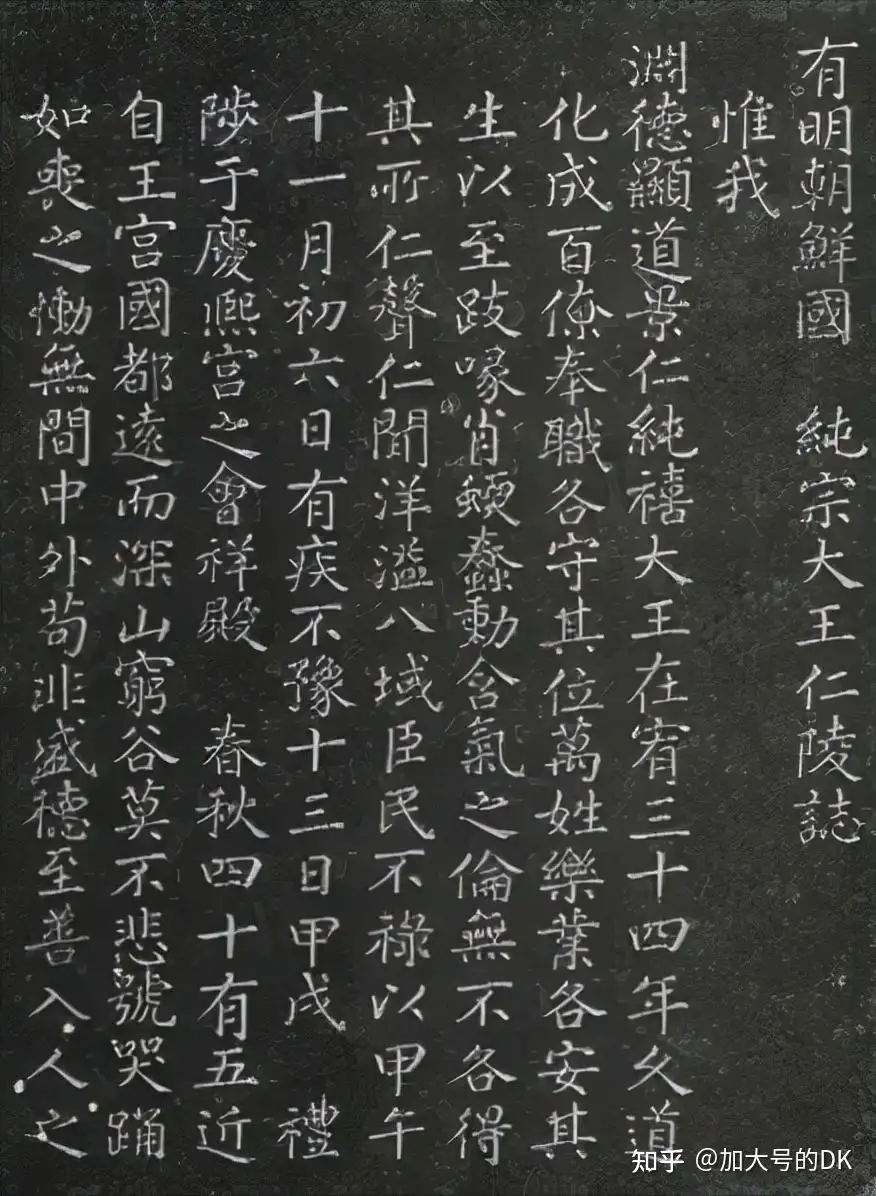 有明朝鮮國　純宗大王仁陵誌
惟我
淵德顯道景仁純禧大王在宥三十四年久道
化成百僚奉職各守其位萬姓樂業各安其
生以至跂喙肖蝡蠢動含氣之倫無不各得
其所仁聲仁聞洋溢八域臣民不祿以甲午
十一月初六日有疾不豫十三日甲戌　禮
陟于慶熙宮之會祥殿　春秋四十有五近
自王宮國都遠而深山窮谷莫不悲號哭踊
如喪之慟無間中外苟非盛德至善入人之
知乎 @加大号的DK